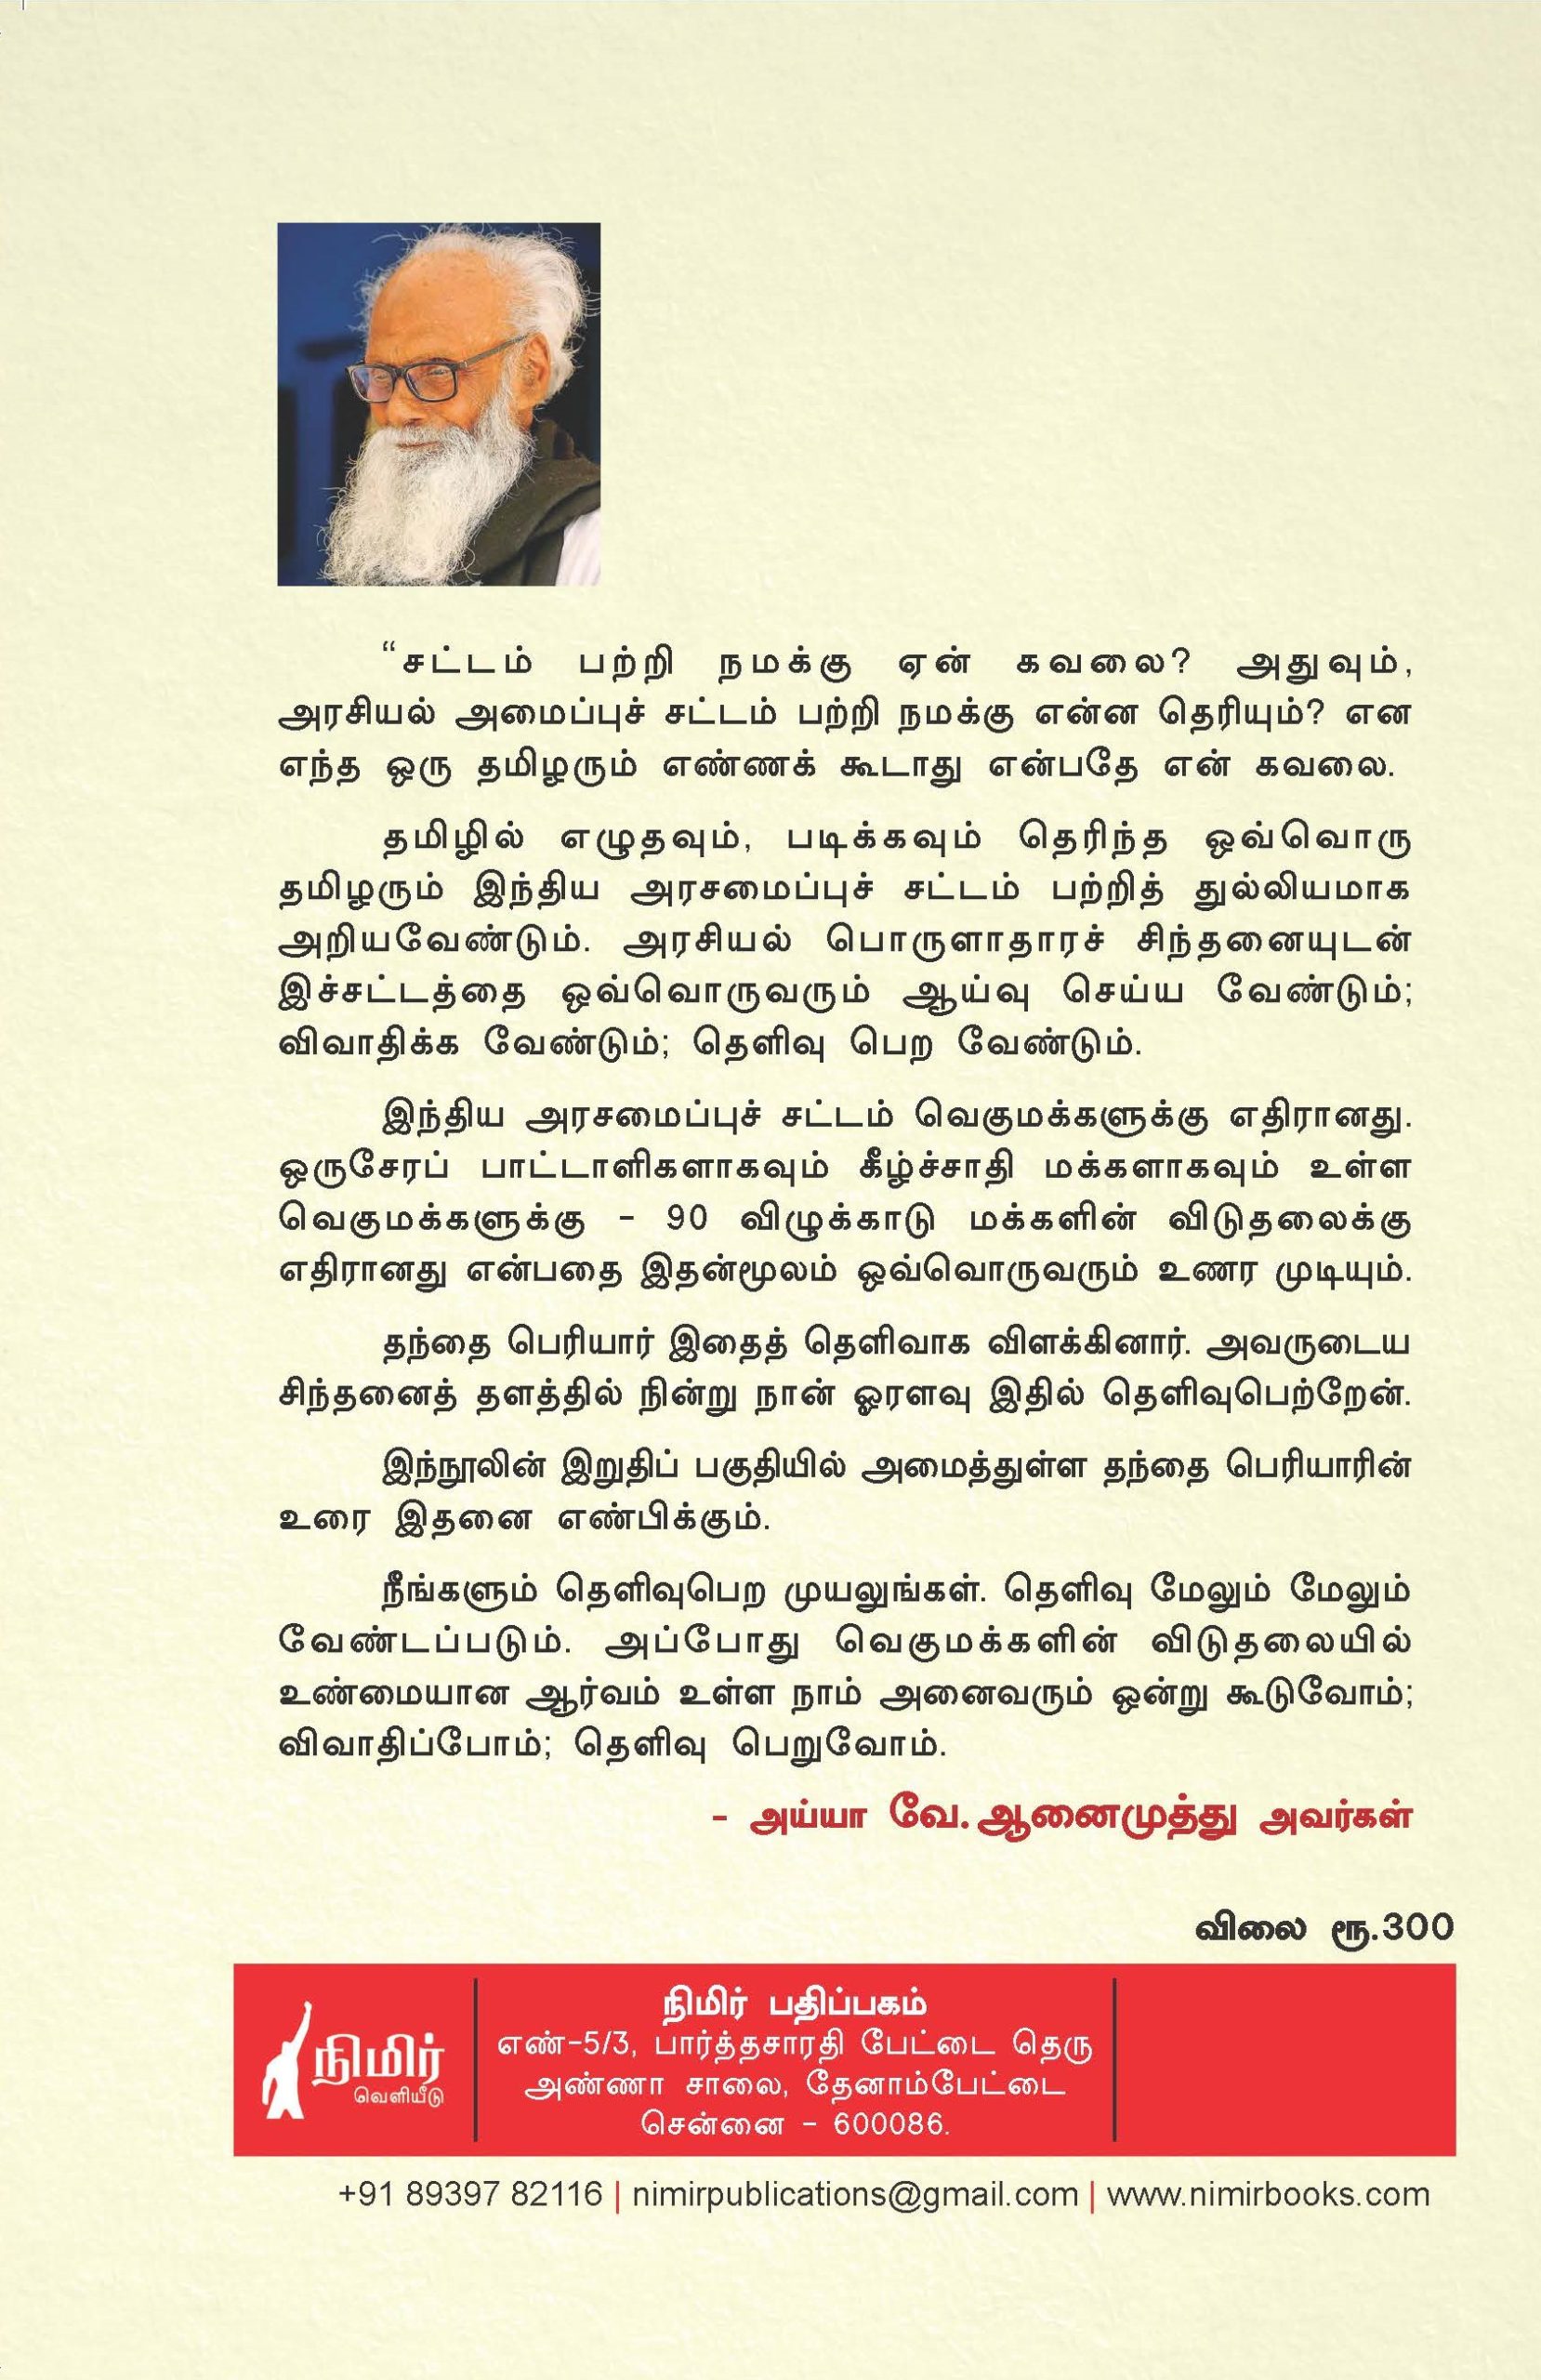 “சட்டம் பற்றி நமக்கு ஏன் கவலை? அதுவும்,
அரசியல் அமைப்புச் சட்டம் பற்றி நமக்கு என்ன தெரியும்? என
எந்த ஒரு தமிழரும் எண்ணக் கூடாது என்பதே என் கவலை.
தமிழில் எழுதவும், படிக்கவும் தெரிந்த ஒவ்வொரு
தமிழரும் இந்திய அரசமைப்புச் சட்டம் பற்றித் துல்லியமாக
அறியவேண்டும். அரசியல் பொருளாதாரச் சிந்தனையுடன்
இச்சட்டத்தை ஒவ்வொருவரும் ஆய்வு செய்ய வேண்டும்;
விவாதிக்க வேண்டும்; தெளிவு பெற வேண்டும்.
இந்திய அரசமைப்புச் சட்டம் வெகுமக்களுக்கு எதிரானது.
ஒருசேரப் பாட்டாளிகளாகவும் கீழ்ச்சாதி மக்களாகவும் உள்ள
வெகுமக்களுக்கு - 90 விழுக்காடு மக்களின் விடுதலைக்கு
எதிரானது என்பதை இதன்மூலம் ஒவ்வொருவரும் உணர முடியும்.
தந்தை பெரியார் இதைத் தெளிவாக விளக்கினார். அவருடைய
சிந்தனைத் தளத்தில் நின்று நான் ஓரளவு இதில் தெளிவுபெற்றேன்.
இந்நூலின் இறுதிப் பகுதியில் அமைத்துள்ள தந்தை பெரியாரின்
உரை இதனை எண்பிக்கும்.
நீங்களும் தெளிவுபெற முயலுங்கள். தெளிவு மேலும் மேலும்
வேண்டப்படும். அப்போது வெகுமக்களின் விடுதலையில்
உண்மையான ஆர்வம் உள்ள நாம் அனைவரும் ஒன்று கூடுவோம்;
விவாதிப்போம்; தெளிவு பெறுவோம்.
- அய்யா வே.ஆனைமுத்து அவர்கள்
விலை ரூ.300
நிமிர்
வெளியீடு
நிமிர் பதிப்பகம்
எண்-5/3, பார்த்தசாரதி பேட்டை தெரு
அண்ணா சாலை, தேனாம்பேட்டை
சென்னை - 600086.
+91 89397 82116 | nimirpublications@gmail.com | www.nimirbooks.com